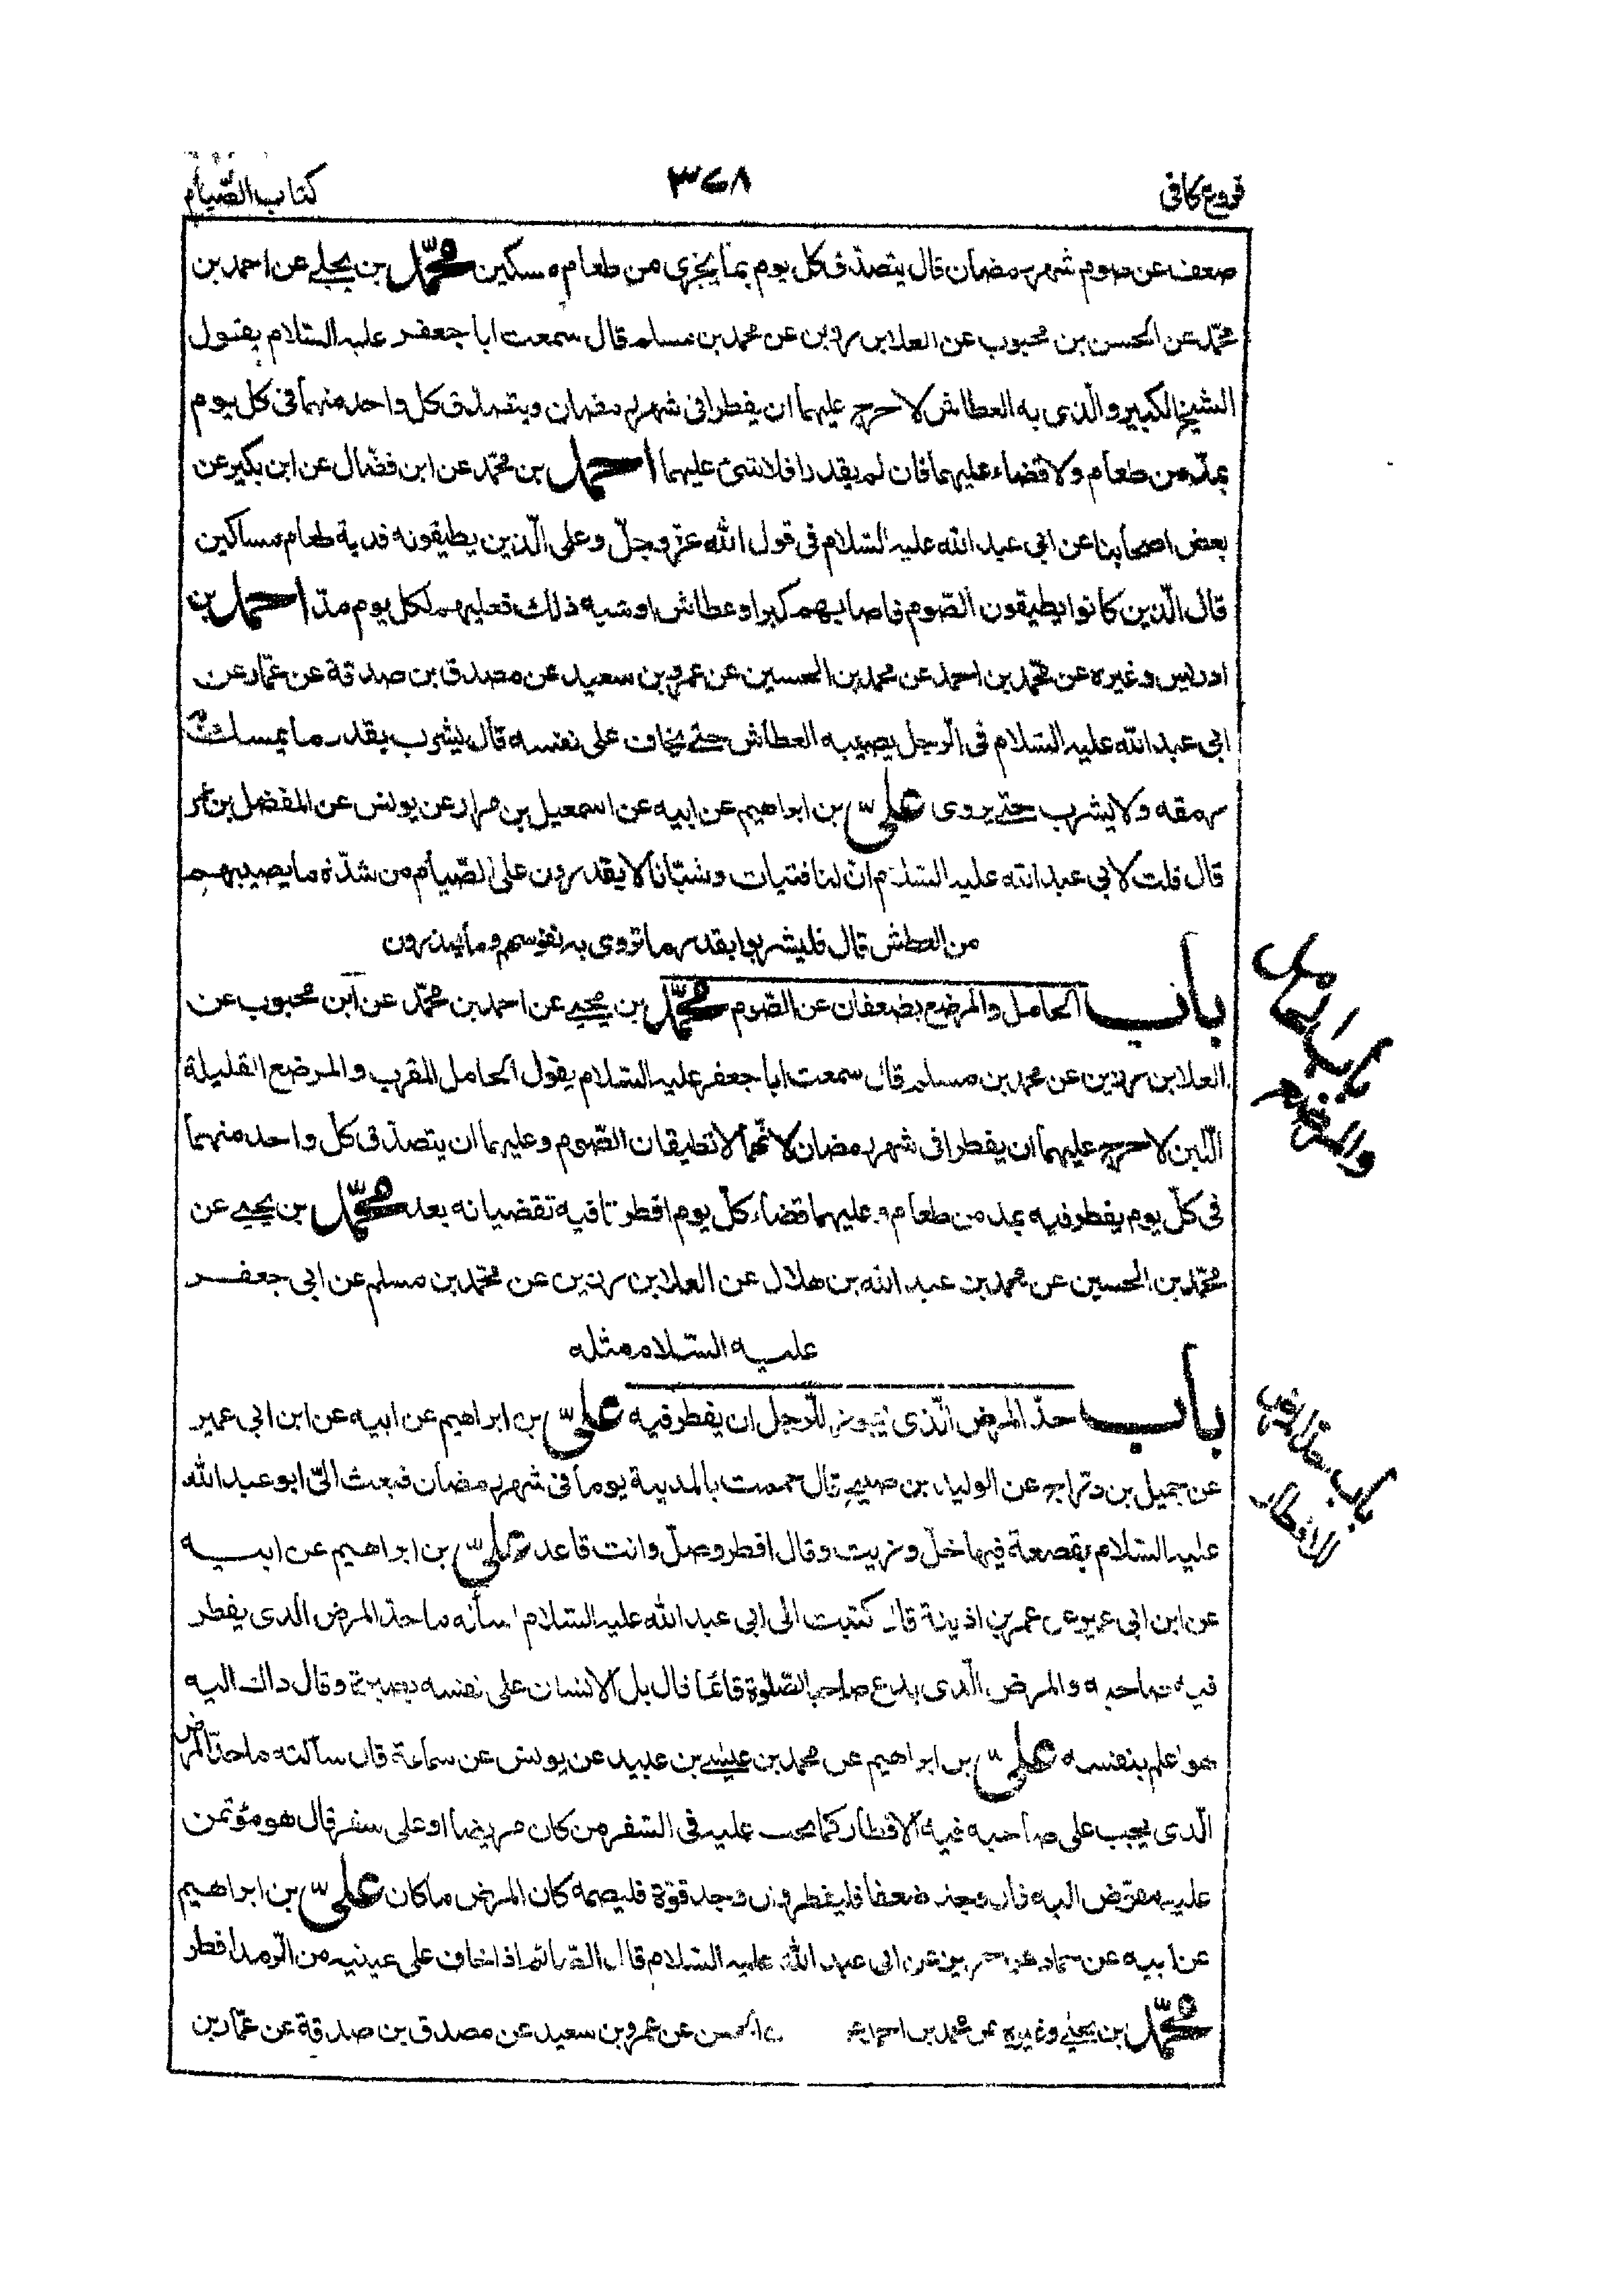 فروع كافى
٣٧٨
كتاب الصّيام
ضعف عن صوم شهر رمضان قال يتصدّق كل يوم بما يجزى من طعام مسكين محمّد بن يحيى عن احمد بن
محمّد عن الحسن بن محبوب عن العلا بن رزين عن محمد بن مسلم قال سمعت ابا جعفر عليه السّلام يقول
الشيخ الكبير والّذى به العطاش لا حرج عليهما ان يفطرا فى شهر رمضان ويتصدّق كل واحد منهما فى كل يوم
بمدّ من طعام ولا قضاء عليهما فان لم يقدرا فلا شئ عليهما احمد بن محمّد عن ابن فضّال عن ابن بكير عن
بعض اصحابنا عن ابى عبد الله عليه السّلام فى قول الله عزّوجلّ وعلى الّذين يطيقونه فدية طعام مساكين
قال الّذين كانوا يطيقون الصّوم فاصابهم كبر او عطاش او شبه ذلك فعليهم لكل يوم مدّ احمد بن
ادريس وغيره عن محمّد بن احمد عن محمد بن الحسين عن عمرو بن سعيد عن مصدق بن صدقة عن عمّار عن
ابى عبد الله عليه السّلام فى الرّجل يصيبه العطاش حتى يخاف على نفسه قال يشرب بقدر ما يمسك به
رمقه ولا يشرب حتى يروى علىّ بن ابراهيم عن ابيه عن اسمعيل بن مرار عن يونس عن المفضل بن عمر
قال قلت لابى عبد الله عليه السّلام انّ لنا فتيات وشبّانا لا يقدرون على الصّيام من شدّة ما يصيبهم
من العطش قال فليشربوا بقدر ما تروى به نفوسهم وما يحذرون
باب الحامل والمرضع يضعفان عن الصّوم محمّد بن يحيى عن احمد بن محمّد عن ابن محبوب عن
العلا بن رزين عن محمد بن مسلم قال سمعت ابا جعفر عليه السّلام يقول الحامل المقرب والمرضع القليلة
اللّبن لا حرج عليهما ان يفطرا فى شهر رمضان لانّهما لا تطيقان الصّوم وعليهما ان يتصدّق كل واحد منهما
فى كلّ يوم يفطر فيه بمد من طعام وعليهما قضاء كلّ يوم افطرتا فيه تقضيانه بعد محمّد بن يحيى عن
محمّد بن الحسين عن محمد بن عبد الله بن هلال عن العلا بن رزين عن محمّد بن مسلم عن ابى جعفر
عليه السّلام مثله
باب الحامل
والمرضع
باب حدّ المرض الّذى يجوز للرّجل ان يفطر فيه علىّ بن ابراهيم عن ابيه عن ابن ابى عمير
عن جميل بن درّاج عن الوليد بن صبيح قال حممت بالمدينة يوما فى شهر رمضان فبعث الىّ ابو عبد الله
عليه السّلام بقصعة فيها خلّ وزيت وقال افطر وصلّ وانت قاعد علىّ بن ابراهيم عن ابيه
عن ابن ابى عمير عن عمر بن اذينة قال كتبت الى ابى عبد الله عليه السّلام اسأله ما حدّ المرض الذى يفطر
فيه صاحبه والمرض الّذى يدع صاحبه الصّلوة قائما قال بل الانسان على نفسه بصيرة وقال ذاك اليه
هو اعلم بنفسه علىّ بن ابراهيم عن محمد بن عيسى بن عبيد عن يونس عن سماعة قال سألته ما حدّ المرض
الّذى يجب على صاحبه فيه الافطار كما يجب عليه فى السّفر من كان مريضا او على سفر قال هو مؤتمن
عليه مفوّض اليه فان وجد ضعفا فليفطر وان وجد قوّة فليصمه كان المرض ما كان علىّ بن ابراهيم
عن ابيه عن حماد عن حريز عن ابى عبد الله عليه السّلام قال الصّائم اذا خاف على عينيه من الرّمد افطر
محمّد بن يحيى وغيره عن محمد بن احمد عن عمرو بن سعيد عن مصدق بن صدقة عن عمّار بن
باب حدّ المرض
الافطار